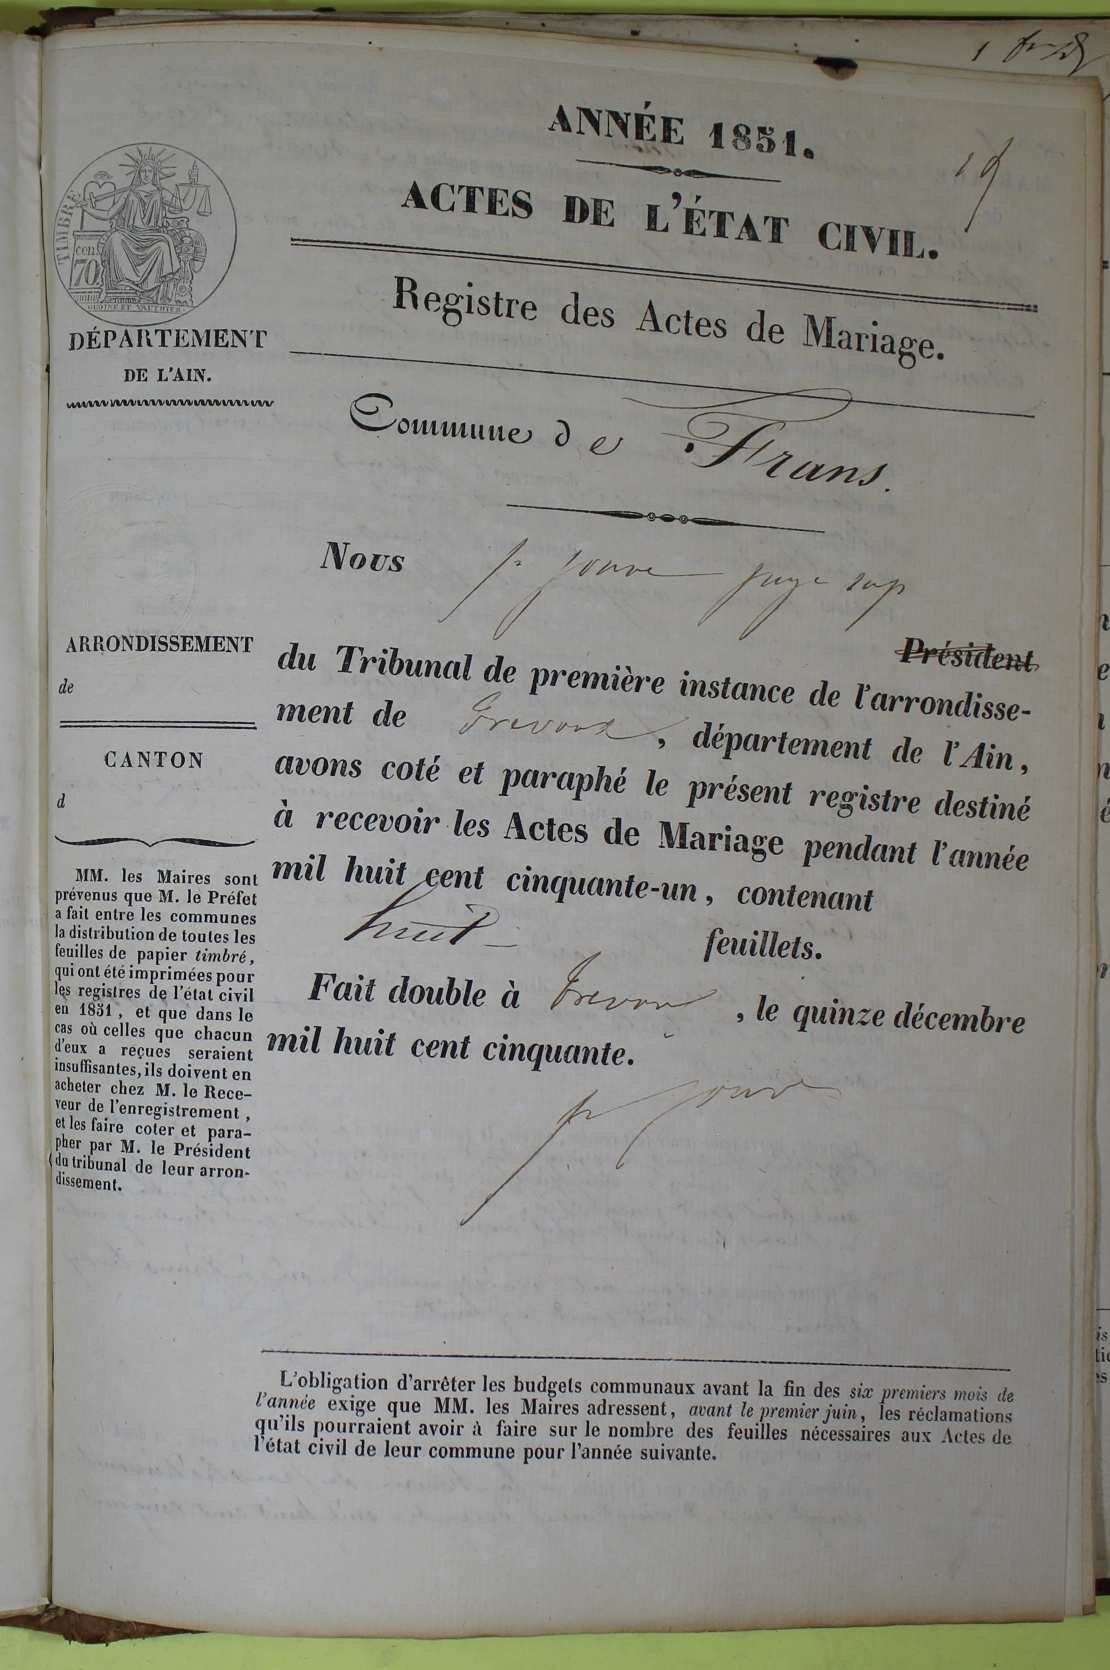 ANNÉE 1851.
ACTES DE L'ÉTAT CIVIL.
Registre des Actes de Mariage.
TIMBRE
cen.
70
DÉPARTEMENT
DE L'AIN.
Commune de Frans.
Nous Jouve juge sup
Président
du Tribunal de première instance de l'arrondisse-
ment de Trevoux, département de l'Ain,
avons coté et paraphé le présent registre destiné
à recevoir les Actes de Mariage pendant l'année
mil huit cent cinquante-un, contenant
huit feuillets.
Fait double à Trevoux, le quinze décembre
mil huit cent cinquante.
Jouve
ARRONDISSEMENT
de
CANTON
d
MM. les Maires sont
prévenus que M. le Préfet
a fait entre les communes
la distribution de toutes les
feuilles de papier timbré,
qui ont été imprimées pour
les registres de l'état civil
en 1851, et que dans le
cas où celles que chacun
d'eux a reçues seraient
insuffisantes, ils doivent en
acheter chez M. le Rece-
veur de l'enregistrement,
et les faire coter et para-
pher par M. le Président
du tribunal de leur arron-
dissement.
L'obligation d'arrêter les budgets communaux avant la fin des six premiers mois de
l'année exige que MM. les Maires adressent, avant le premier juin, les réclamations
qu'ils pourraient avoir à faire sur le nombre des feuilles nécessaires aux Actes de
l'état civil de leur commune pour l'année suivante.